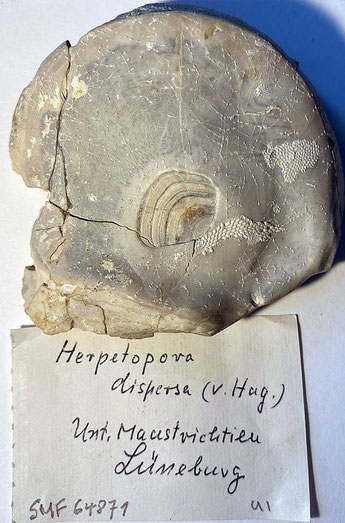 Herpetopora
dispersa (v. Hag.)
Unt. Maastrichtien
Lüneburg
SMF 64871